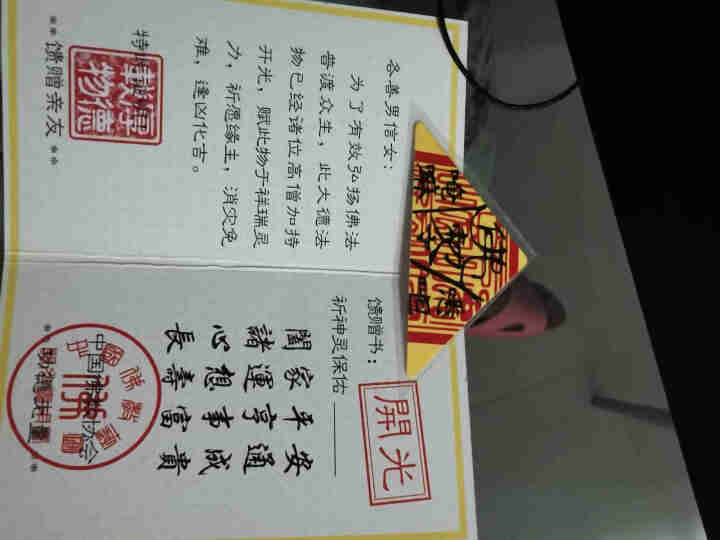 各善男信女：
为了有效弘扬佛法
普渡众生，此大德法
物已经诸位高僧加持
开光，赋此物于祥瑞灵
力，祈愿缘主，消灾免
难，逢凶化吉。
特
**馈赠亲友**
馈赠书：
祈神灵保佑
開光
闔家平安
諸運亨通
心想事成
長壽富貴
中国佛教协会